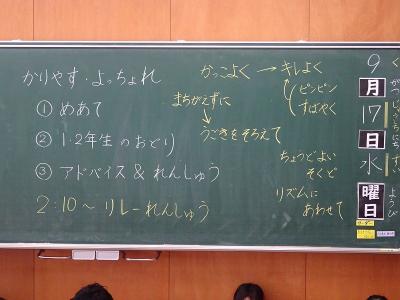 かりやす・よっちょれ
① めあて
② 1・2年生のおどり
③ アドバイス & れんしゅう
2:10〜 リレーれんしゅう
かっこよく → キレよく
ピンピン
すばやく
まちがえずに
うごきをそろえて
ちょうどよい
そくど
リズムに
あわせて
9
月
17
日
水
曜
日
がつ
じゅうしちにち
すい
ようび